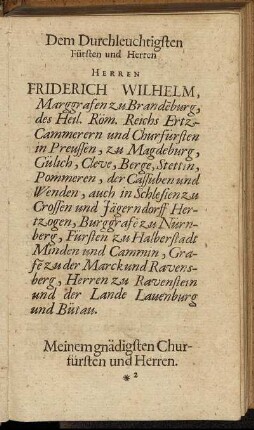 Dem Durchleuchtigsten
Fürsten und Herren
HERREN
FRIDERICH WILHELM,
Marggrafen zu Brandēburg,
des Heil. Röm. Reichs Ertz-
Cammerern und Churfürsten
in Preussen, zu Magdeburg,
Gülich, Cleve, Berge, Stettin,
Pommeren, der Cassuben und
Wenden, auch in Schlesien zu
Crossen und Jägerndorff Her-
tzogen, Burggrafē zu Nürn-
berg, Fürsten zu Halberstadt
Minden und Cammin, Gra-
fē zu der Marck und Ravens-
berg, Herren zu Ravenstein
und der Lande Lauenburg
und Bütau.
Meinem gnädigsten Chur-
fürsten und Herren.
* 2